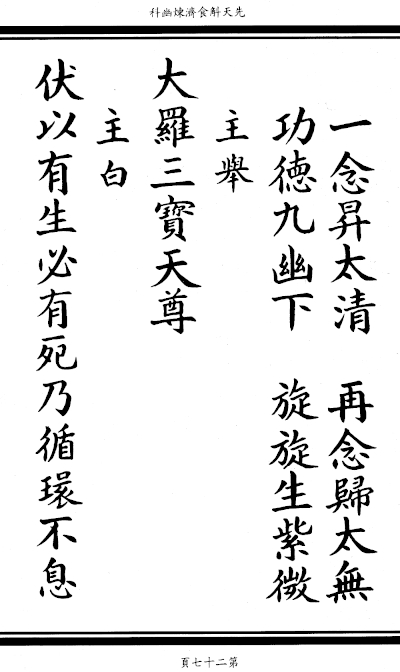 先天斛食濟煉幽科
一念昇太清　再念歸太無
功德九幽下　旋旋生紫微
主舉
大羅三寶天尊
主白
伏以有生必有死乃循環不息
第二十七頁